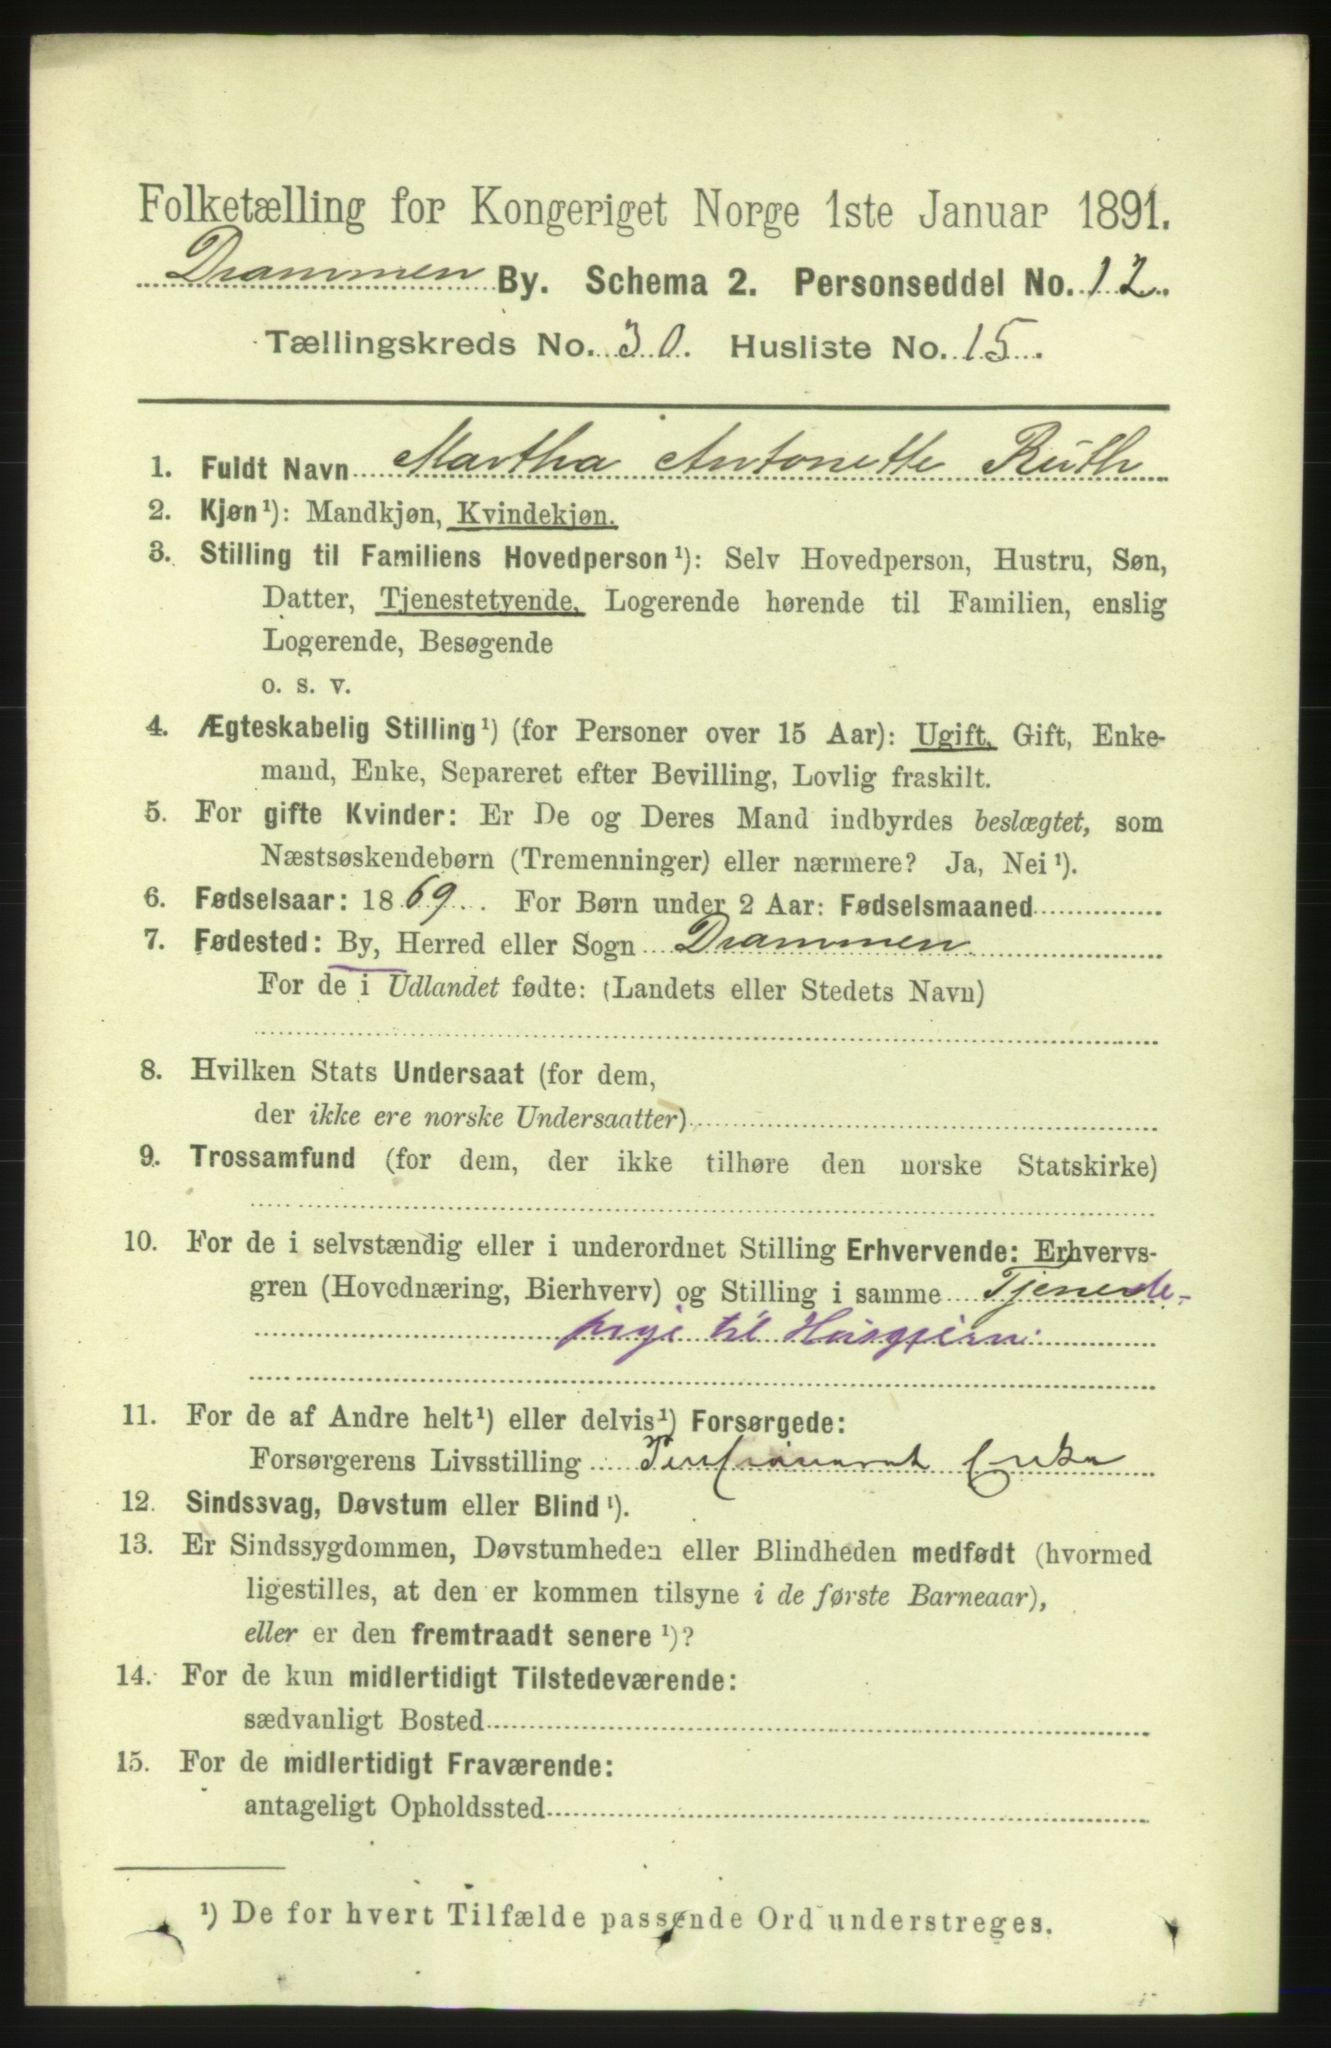 Folketælling for Kongeriget Norge 1ste Januar 1891.
Drammen By. Schema 2. Personseddel No. 12.
Tællingskreds No. 30. Husliste No. 15.
1. Fuldt Navn Martha Antonette Ruth
2. Kjøn¹): Mandkjøn, Kvindekjøn.
3. Stilling til Familiens Hovedperson¹): Selv Hovedperson, Hustru, Søn,
Datter, Tjenestetyende, Logerende hørende til Familien, enslig
Logerende, Besøgende
o. s. v.
4. Ægteskabelig Stilling¹) (for Personer over 15 Aar): Ugift, Gift, Enke-
mand, Enke, Separeret efter Bevilling, Lovlig fraskilt.
5. For gifte Kvinder: Er De og Deres Mand indbyrdes beslægtet, som
Næstsøskendebørn (Tremenninger) eller nærmere? Ja, Nei¹).
6. Fødselsaar: 1869. For Børn under 2 Aar: Fødselsmaaned
7. Fødested: By, Herred eller Sogn Drammen
For de i Udlandet fødte: (Landets eller Stedets Navn)
8. Hvilken Stats Undersaat (for dem,
der ikke ere norske Undersaatter)
9. Trossamfund (for dem, der ikke tilhøre den norske Statskirke)
10. For de i selvstændig eller i underordnet Stilling Erhvervende: Erhvervs-
gren (Hovednæring, Bierhverv) og Stilling i samme Tjeneste-
pige til Husgjern.
11. For de af Andre helt¹) eller delvis¹) Forsørgede:
Forsørgerens Livsstilling Enke
12. Sindssvag, Døvstum eller Blind¹).
13. Er Sindssygdommen, Døvstumheden eller Blindheden medfødt (hvormed
ligestilles, at den er kommen tilsyne i de første Barneaar),
eller er den fremtraadt senere¹)?
14. For de kun midlertidigt Tilstedeværende:
sædvanligt Bosted
15. For de midlertidigt Fraværende:
antageligt Opholdssted
¹) De for hvert Tilfælde passende Ord understreges.